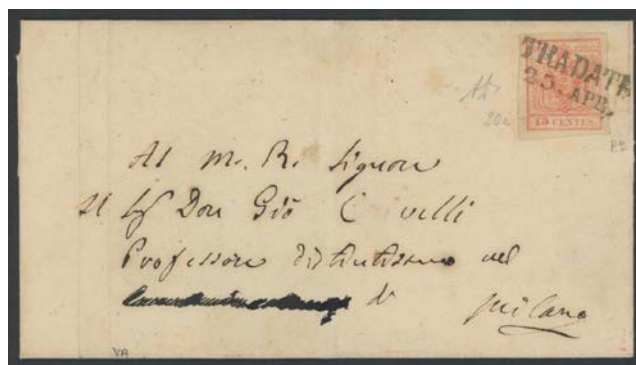 TRADATE
25. APR.
15 CENTES.
20a
Al M. R. Signore
Il Sig Don Giō C velli
Professore distintissimo nel
di Milano
VA